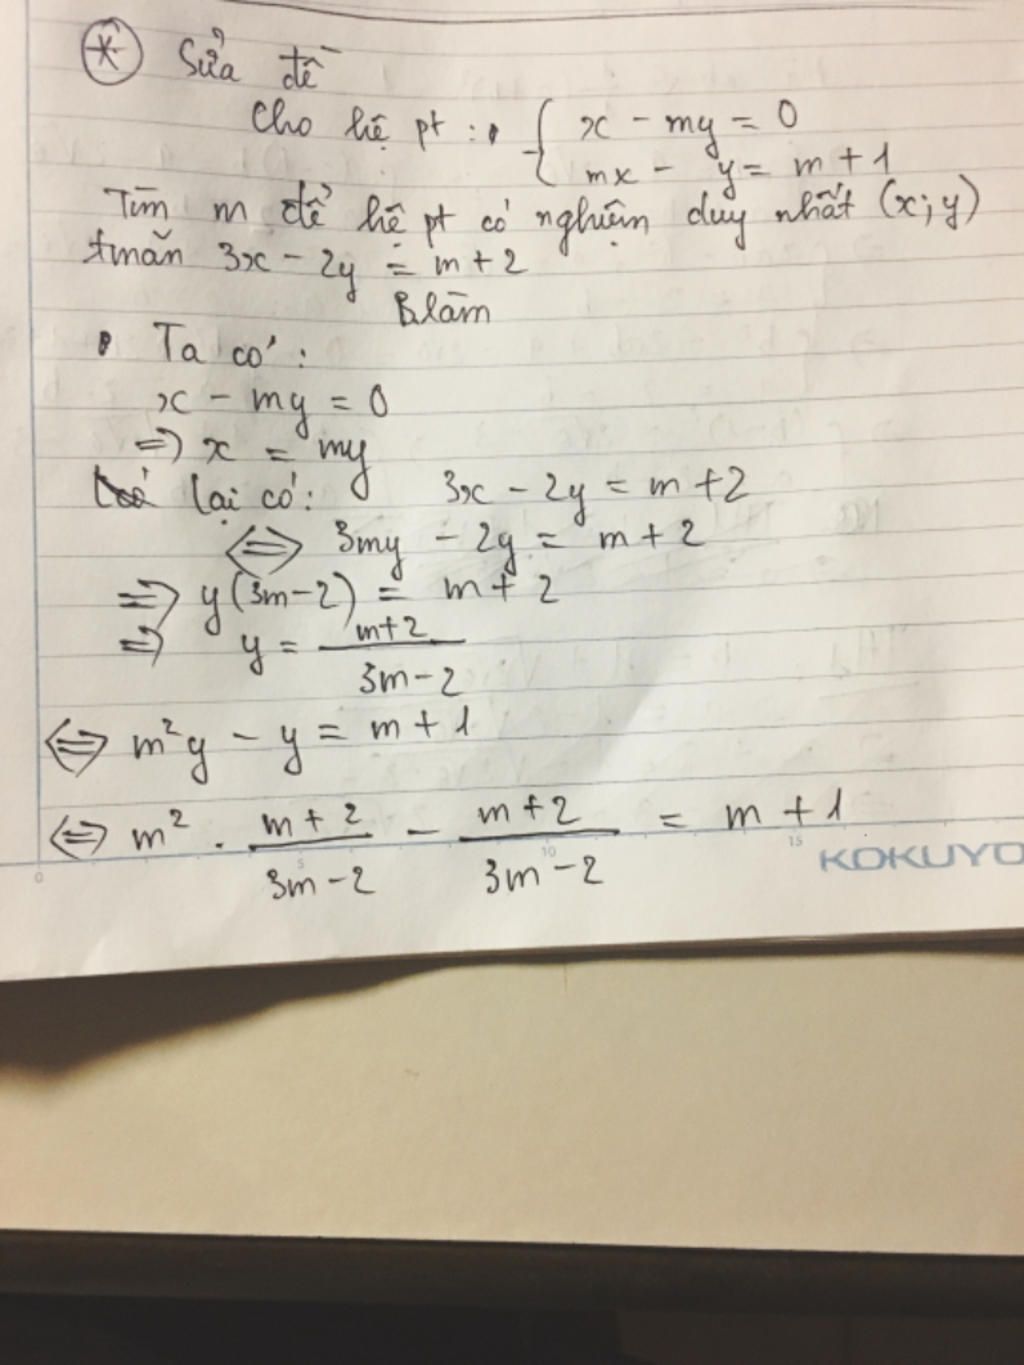 * Sửa đề
Cho hệ pt : { x - my = 0
mx - y = m + 1
Tìm m để hệ pt có nghiệm duy nhất (x; y)
tmãn 3x - 2y = m + 2
Blàm
• Ta có :
x - my = 0
=> x = my
lại có: 3x - 2y = m + 2
<=> 3my - 2y = m + 2
=> y(3m-2) = m + 2
=> y = m+2 / 3m-2
<=> m²y - y = m + 1
<=> m² . m + 2 / 3m - 2 - m + 2 / 3m - 2 = m + 1
0 5 10 15 KOKUYO